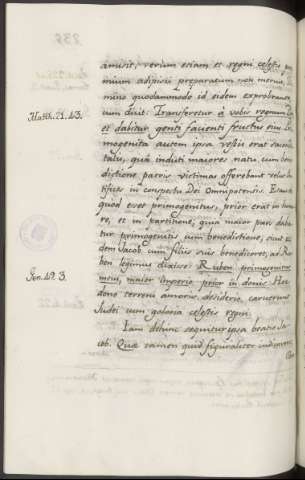 amisit; verum etiam et regni celestis præ-
mium adipisci preparatum non meruit, Do-
mino quodammodo id eidem exprobrante
cum dicit: Transferetur à vobis regnum Dei,
Matth. 21. 43.
et dabitur genti facienti fructus eius. Pri-
mogenita autem ipsa vestis erat sacerdo-
talis, quâ induti maiores natu cum bene-
dictione patris victimas offerebant velut Pon-
tifices in conspectu Dei Omnipotentis. Erat et
quod esset primogenitus, prior erat in hono-
re, et in partitione, quia maior pars daba-
tur primogenitis cum benedictione, sicut ei-
dem Jacob cum filiis suis benediceret, ad Ru-
ben legimus dixisse: Ruben primogenitus
Gen. 49. 3.
meus, maior imperio prior in donis. Ha-
dono terreni amoris, desiderio, caruerunt
Judei cum gloria celestis regni.
Iam dehinc sequitur ipsa beatio Ja-
cob. Quæ tamen quid figuraliter indicaverit